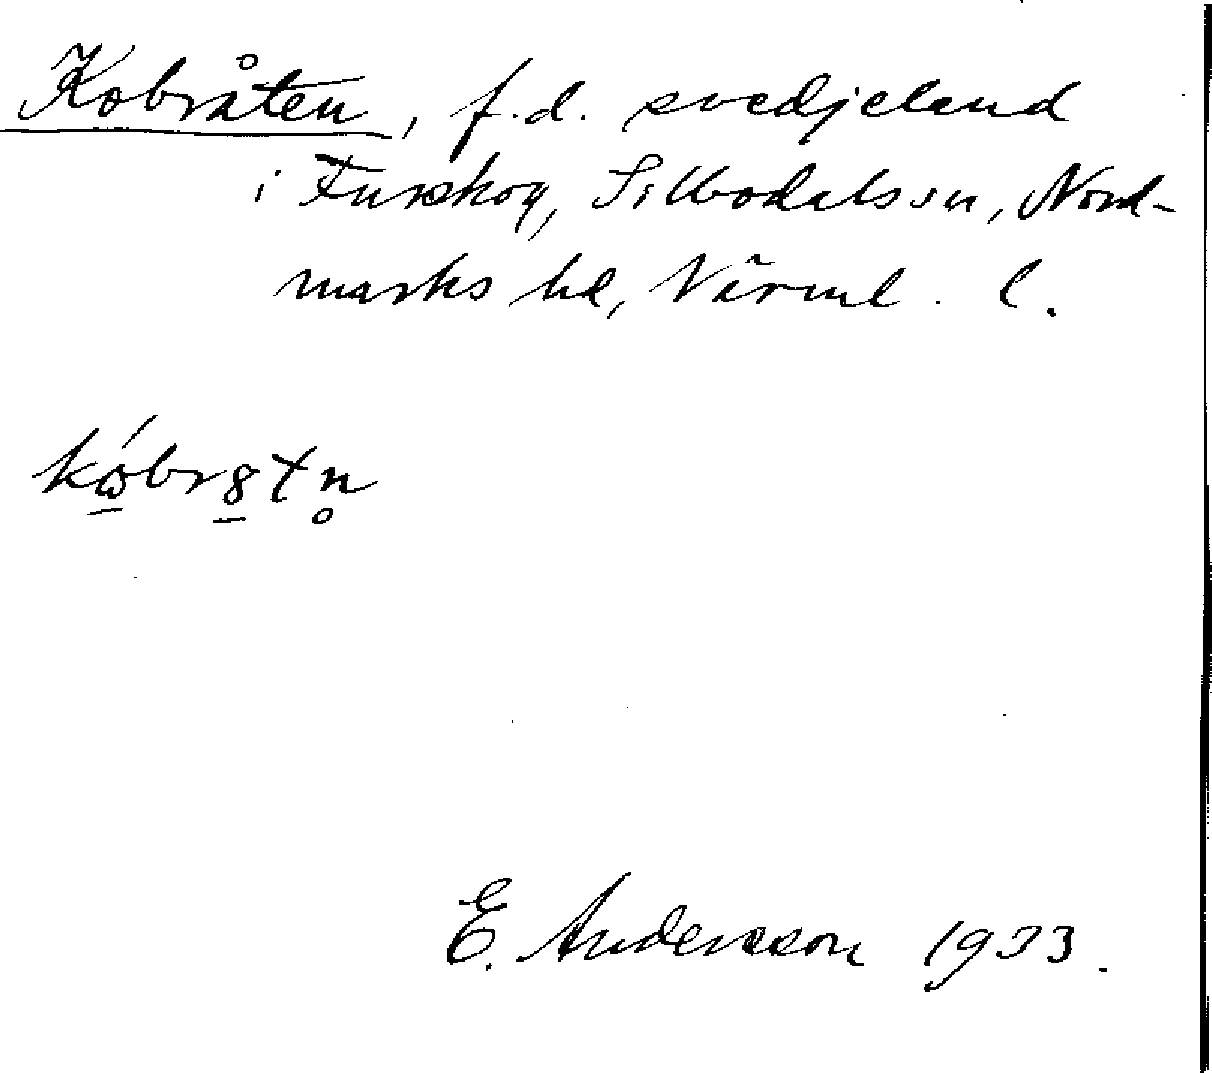 Kobråten, f.d. svedjeland
i Furskog, Silbodals sn, Nord-
marks hd, Värml. l.
E. Andersson 1933.